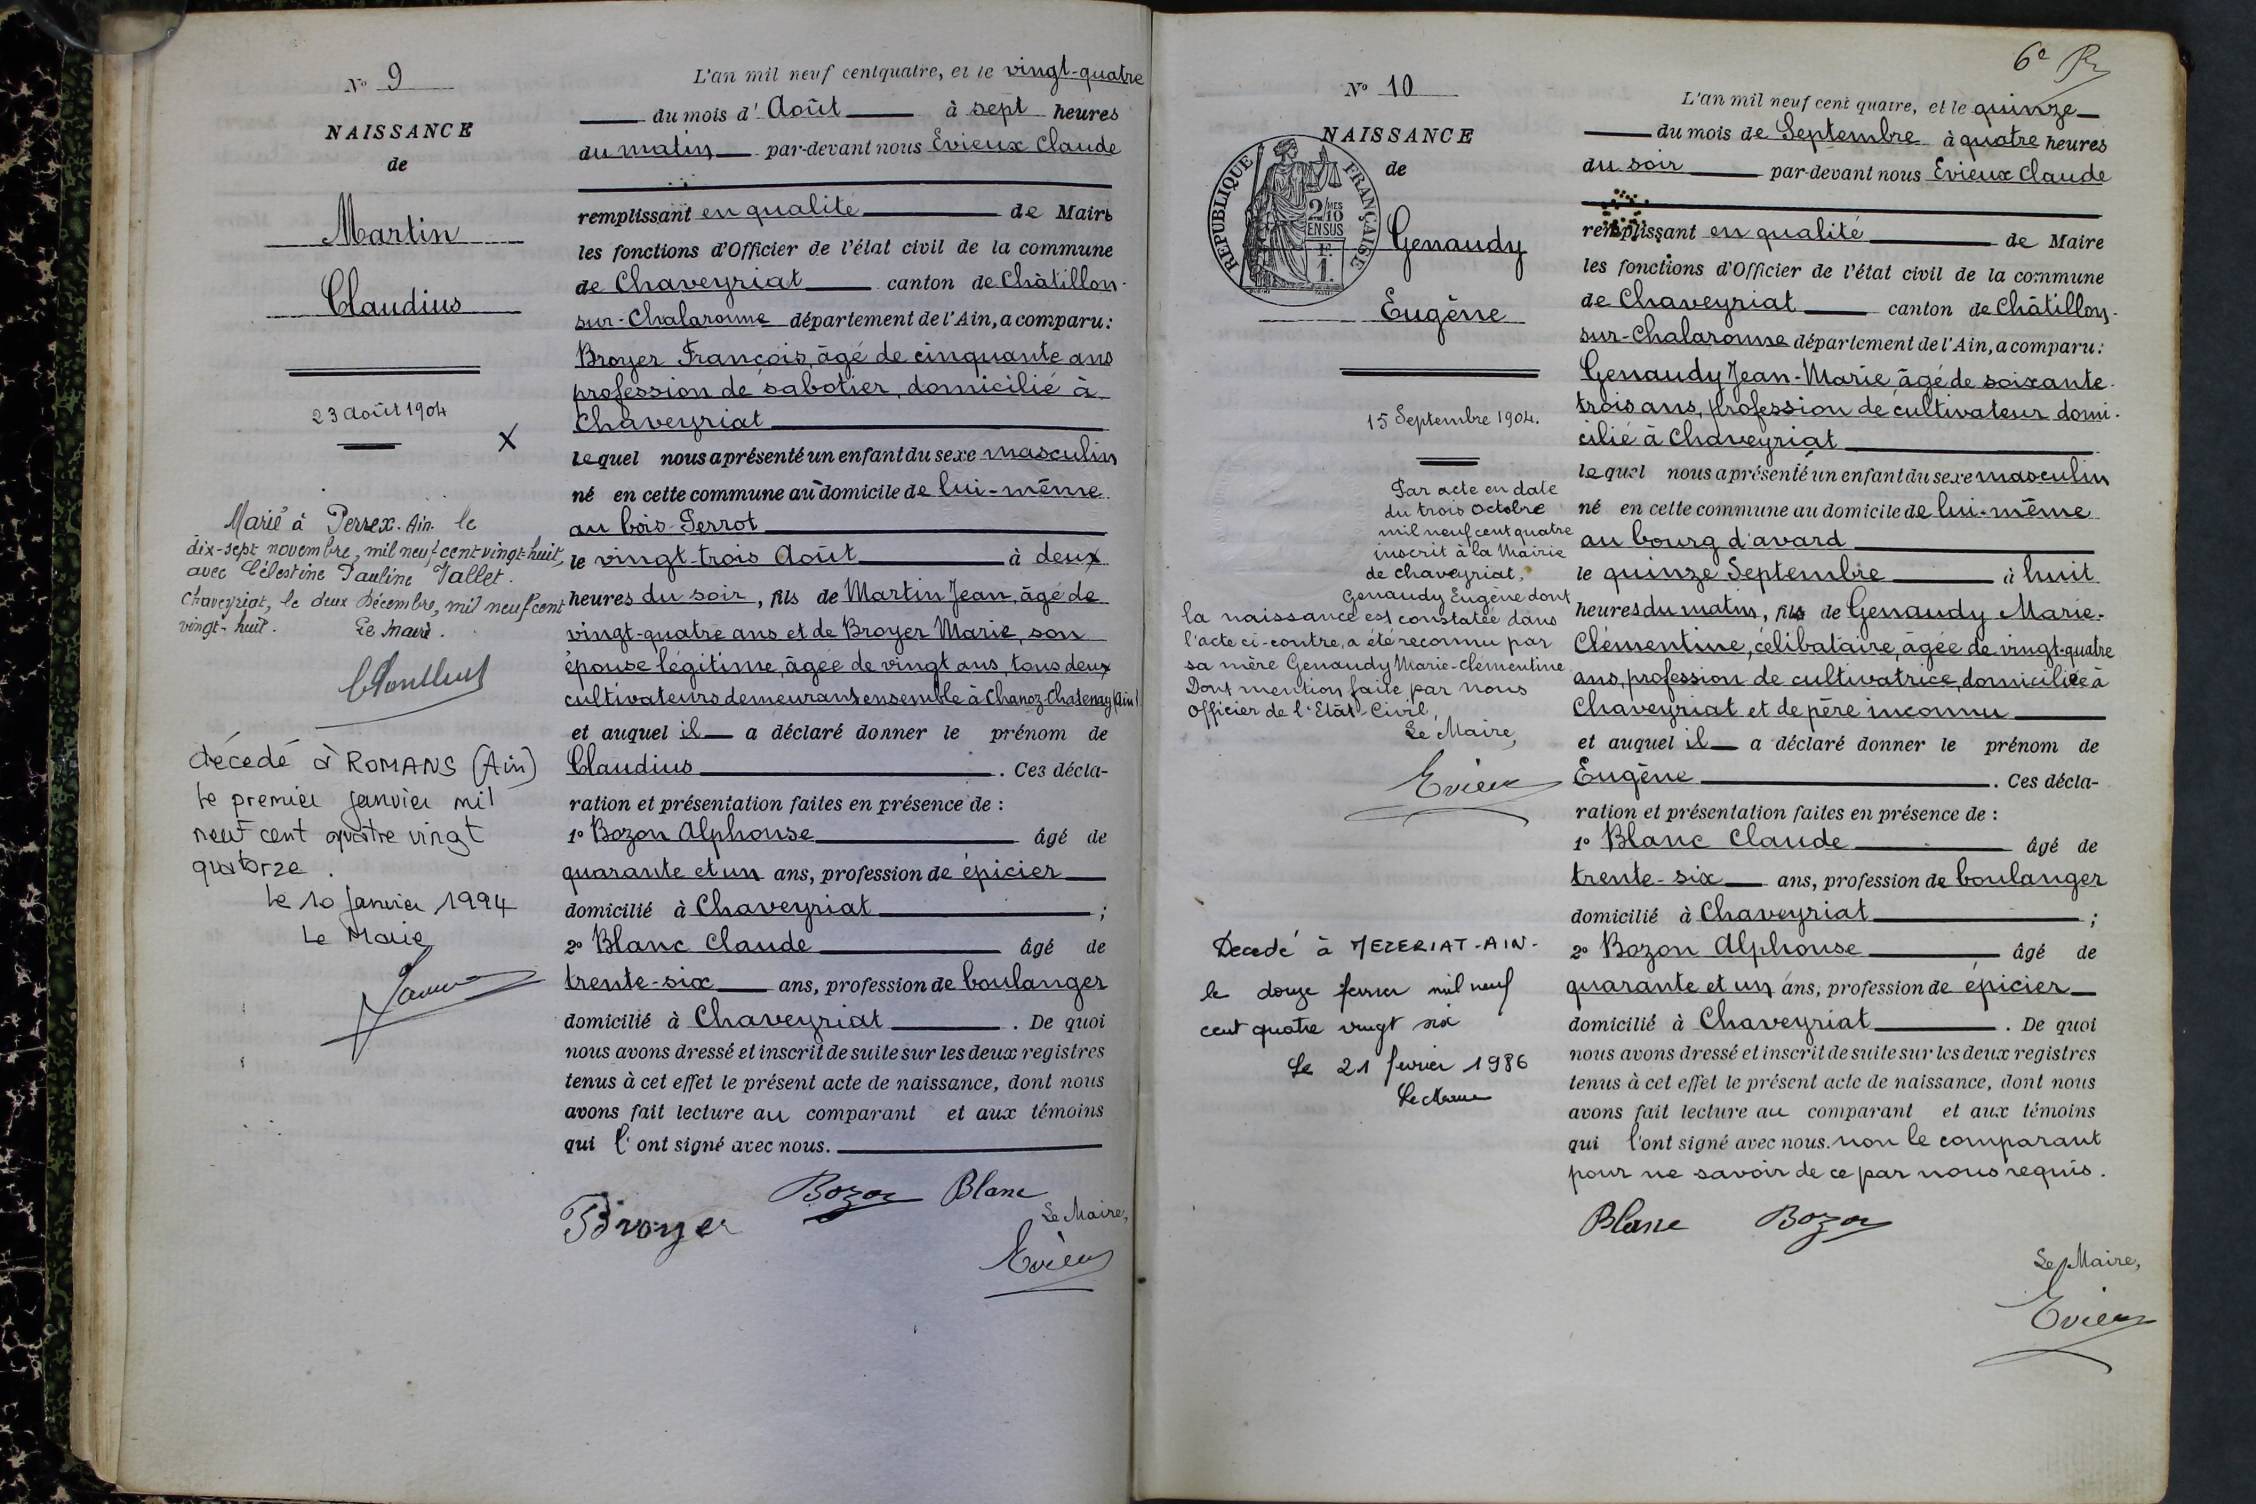 N° 9
NAISSANCE
de
Martin
Claudius
23 Août 1904
X
Marié à Perrex. Ain. le
dix-sept novembre, mil neuf cent vingt-huit,
avec Célestine Pauline Vallet.
Chaveyriat, le deux Décembre, mil neuf cent
vingt-huit. Le Maire.
décédé à ROMANS (Ain)
le premier janvier mil
neuf cent quatre vingt
quatorze.
Le 10 Janvier 1994
Le Maire
L'an mil neuf cent quatre, et le vingt-quatre
du mois d'Août à sept heures
du matin par-devant nous Evieux Claude
remplissant en qualité de Maire
les fonctions d'Officier de l'état civil de la commune
de Chaveyriat canton de Châtillon-
sur-Chalaronne département de l'Ain, a comparu:
Broyer François, âgé de cinquante ans
profession de sabotier, domicilié à
Chaveyriat
lequel nous a présenté un enfant du sexe masculin
né en cette commune au domicile de lui-même
au bois-Perrot
le vingt-trois Août à deux
heures du soir, fils de Martin Jean, âgé de
vingt-quatre ans et de Broyer Marie, son
épouse légitime, âgée de vingt ans, tous deux
cultivateurs demeurant ensemble à Chanoz-Chatenay (Ain)
et auquel il a déclaré donner le prénom de
Claudius. Ces décla-
ration et présentation faites en présence de :
1° Bozon Alphonse âgé de
quarante et un ans, profession de épicier
domicilié à Chaveyriat ;
2° Blanc Claude âgé de
trente-six ans, profession de boulanger
domicilié à Chaveyriat. De quoi
nous avons dressé et inscrit de suite sur les deux registres
tenus à cet effet le présent acte de naissance, dont nous
avons fait lecture au comparant et aux témoins
qui l'ont signé avec nous.
Bozon Blanc
Broyer
Le Maire,
Evieux
6e
N° 10
NAISSANCE
de
RÉPUBLIQUE FRANÇAISE
2/10 MES
EN SUS
F.
1.
Genaudy
Eugène
15 Septembre 1904.
Par acte en date
du trois Octobre
mil neuf cent quatre
inscrit à la Mairie
de Chaveyriat,
Genaudy Eugène dont
la naissance est constatée dans
l'acte ci-contre, a été reconnu par
sa mère Genaudy Marie-Clémentine
Dont mention faite par nous
Officier de l'Etat-Civil,
Le Maire,
Evieux
Decedé à MEZERIAT-AIN-
le douze fevrier mil neuf
cent quatre vingt six
Le 21 fevrier 1986
Le Maire
L'an mil neuf cent quatre, et le quinze
du mois de Septembre à quatre heures
du soir par-devant nous Evieux Claude
remplissant en qualité de Maire
les fonctions d'Officier de l'état civil de la commune
de Chaveyriat canton de Châtillon-
sur-Chalaronne département de l'Ain, a comparu:
Genaudy Jean-Marie âgé de soixante-
trois ans, profession de cultivateur domi-
cilié à Chaveyriat
lequel nous a présenté un enfant du sexe masculin
né en cette commune au domicile de lui-même
au bourg d'avard
le quinze Septembre à huit
heures du matin, fils de Genaudy Marie-
Clémentine, célibataire, âgée de vingt-quatre
ans, profession de cultivatrice, domiciliée à
Chaveyriat et de père inconnu
et auquel il a déclaré donner le prénom de
Eugène. Ces décla-
ration et présentation faites en présence de :
1° Blanc Claude âgé de
trente-six ans, profession de boulanger
domicilié à Chaveyriat ;
2° Bozon Alphonse âgé de
quarante et un ans, profession de épicier
domicilié à Chaveyriat. De quoi
nous avons dressé et inscrit de suite sur les deux registres
tenus à cet effet le présent acte de naissance, dont nous
avons fait lecture au comparant et aux témoins
qui l'ont signé avec nous. non le comparant
pour ne savoir de ce par nous requis.
Blanc Bozon
Le Maire,
Evieux